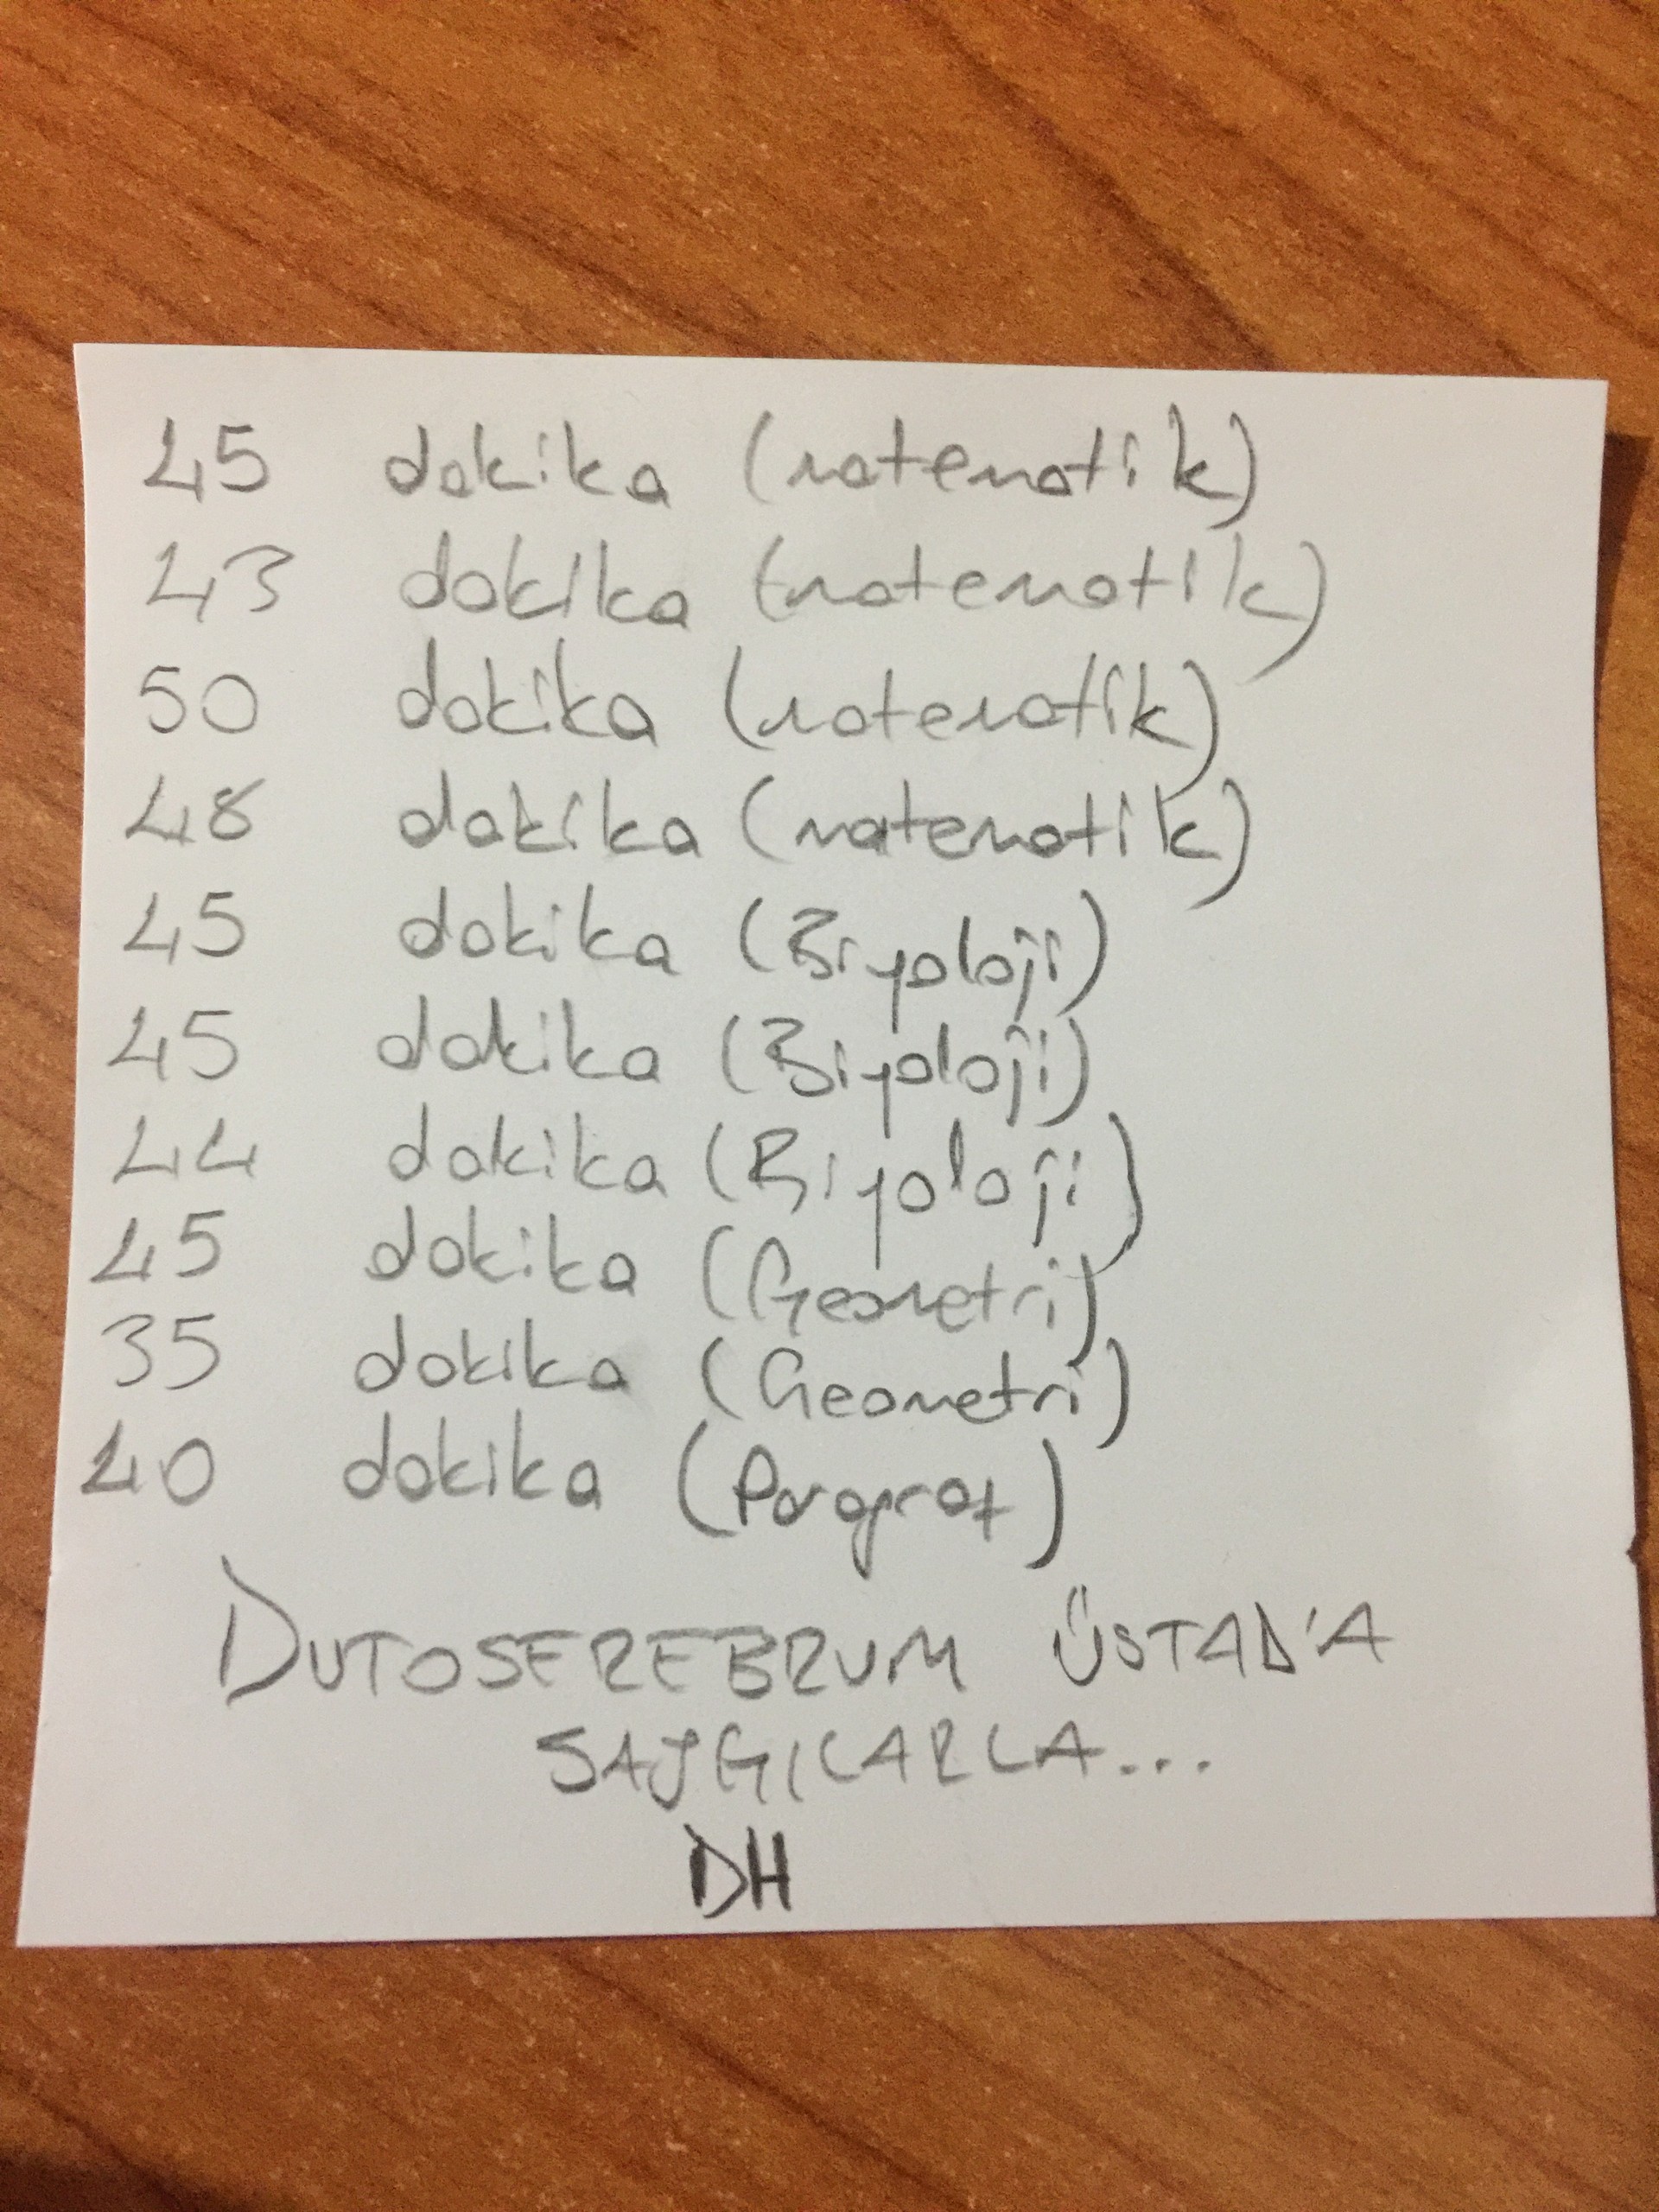 45 dakika (matematik)
43 dakika (matematik)
50 dakika (matematik)
48 dakika (matematik)
45 dakika (Biyoloji)
45 dakika (Biyoloji)
44 dakika (Biyoloji)
45 dakika (Geometri)
35 dakika (Geometri)
40 dakika (Paragraf)
DUTOSEREBRUM ÜSTAD'A
SAYGILARLA...
DH